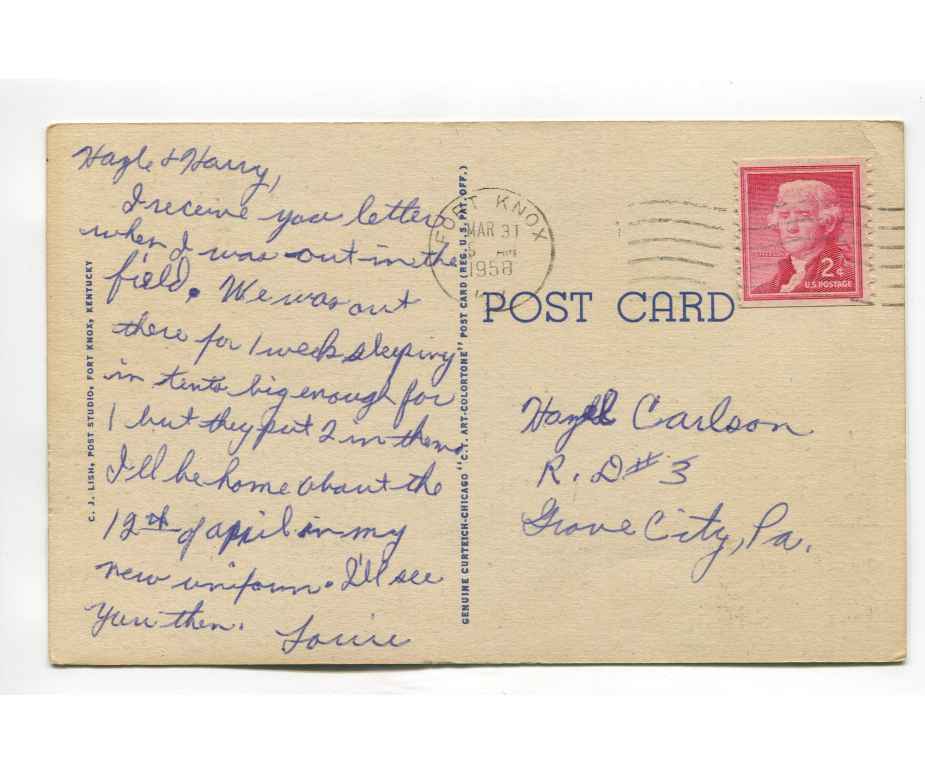 Hazle & Harry,
I receive you letter
when I was out in the
field. We was out
there for 1 week sleeping
in tents big enough for
1 but they put 2 in them.
I'll be home about the
12th of april in my
new uniform. I'll see
you then. Louie
C. J. LISH, POST STUDIO, FORT KNOX, KENTUCKY
GENUINE CURTEICH-CHICAGO "C.T. ART-COLORTONE" POST CARD (REG. U.S. PAT. OFF.)
FORT KNOX
MAR 31
1958
2¢
U.S. POSTAGE
POST CARD
Hazel Carlson
R. D # 3
Grove City, Pa.